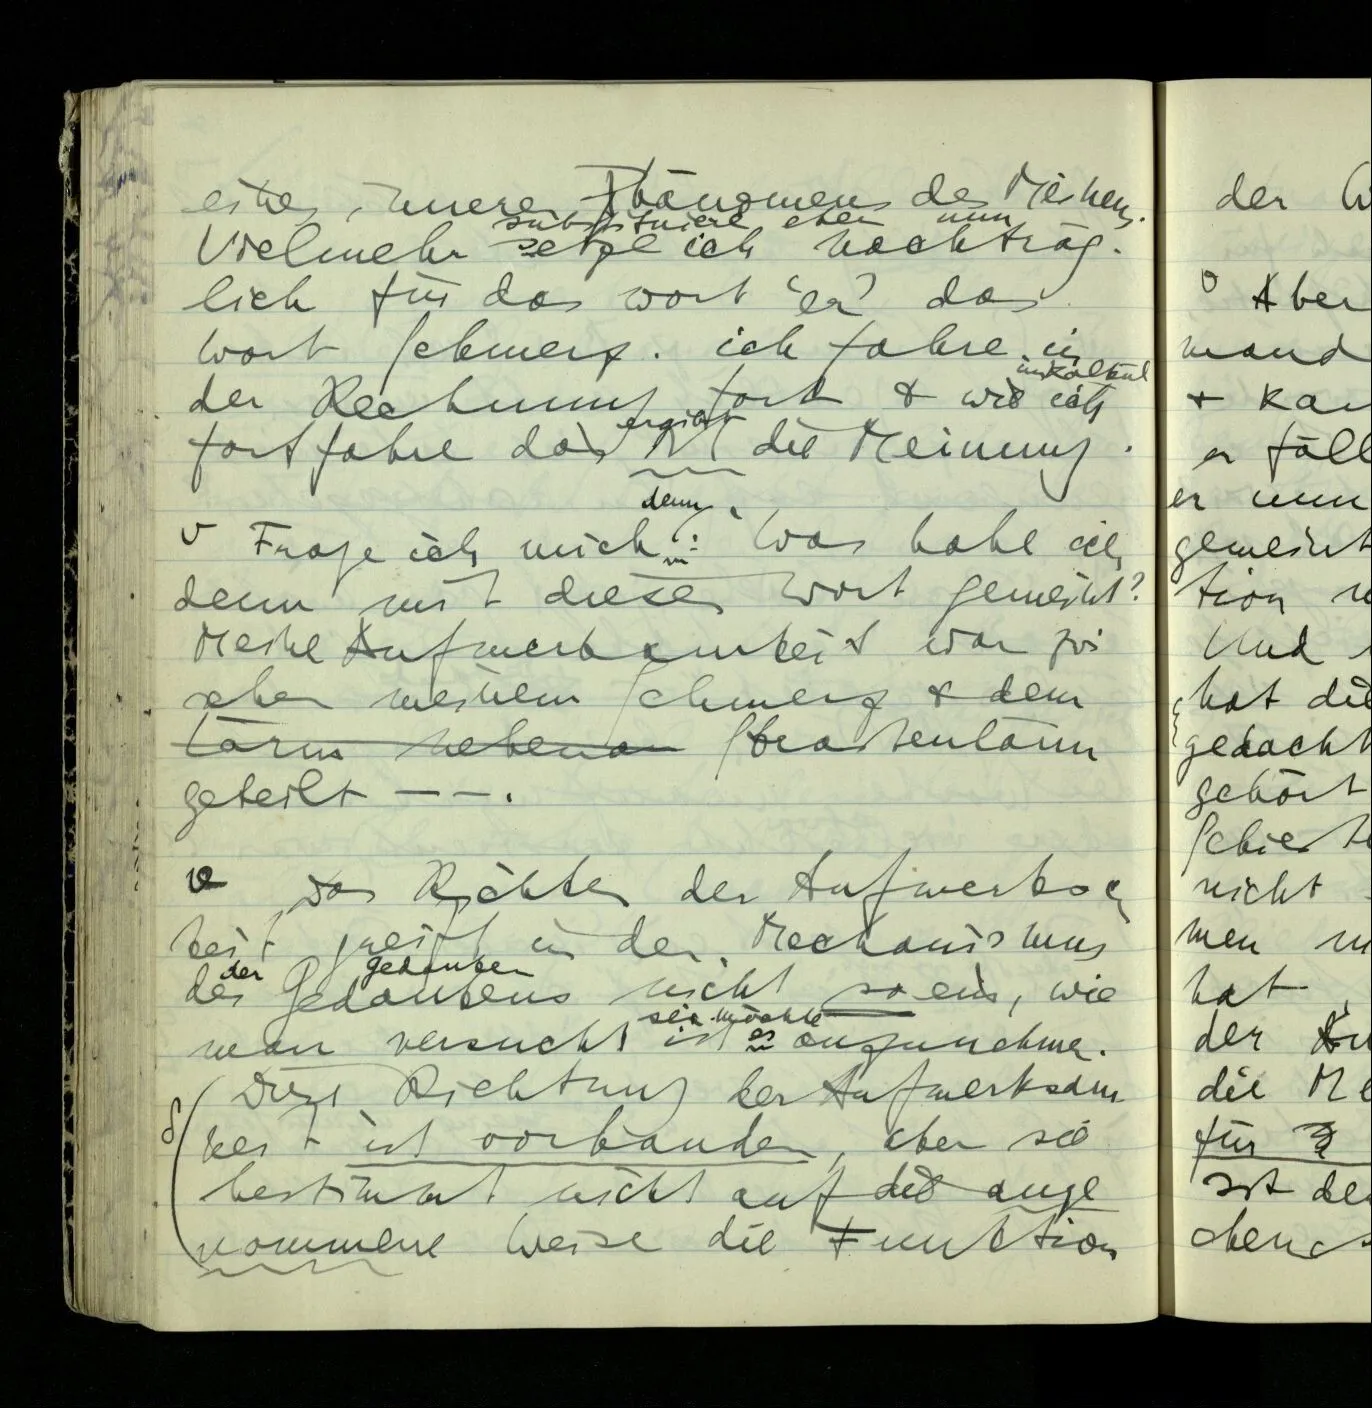 eines inneren Phänomens des Meinens.
substituiere eben nun
Vielmehr setze ich nachträg-
lich für das Wort ‘er’ das
Wort Schmerz. ich fahre in
im Kalkül
der Rechnung fort & wie ich
ergibt
fortfahre das ist die Meinung.
denn
∨ Frage ich mich: Was habe ich
denn mit diesem Wort gemeint?
Meine Aufmerksamkeit war zwi
schen meinem Schmerz & dem
Lärm nebenan Strassenlärm
geteilt – – –.
Das Richten der Aufmerksam
keit greift in den Mechanismus
der Gedanken
des Gedankens nicht so ein, wie
sein möchte
man versucht ist es anzunehmen.
Diese Richtung der Aufmerksam
keit ist vorhanden, aber sie
bestimmt nicht auf die ange
nommene Weise die Funktion
der
Aber
mand
er nun
gemeint
tion
Und
hat die
gedacht
gehört
nicht
men
hat
der
die
für
ist